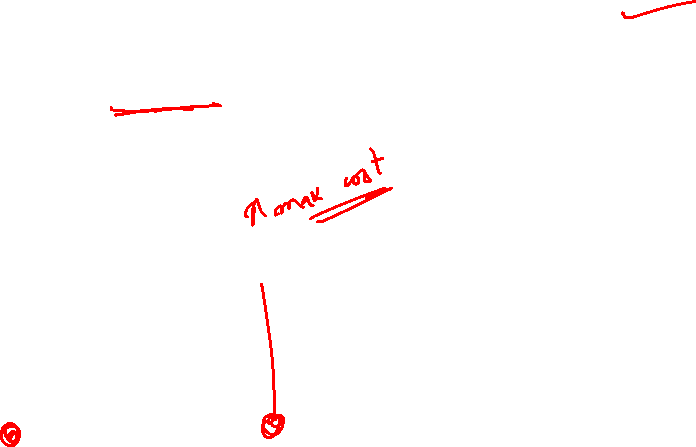 ↑ max cost